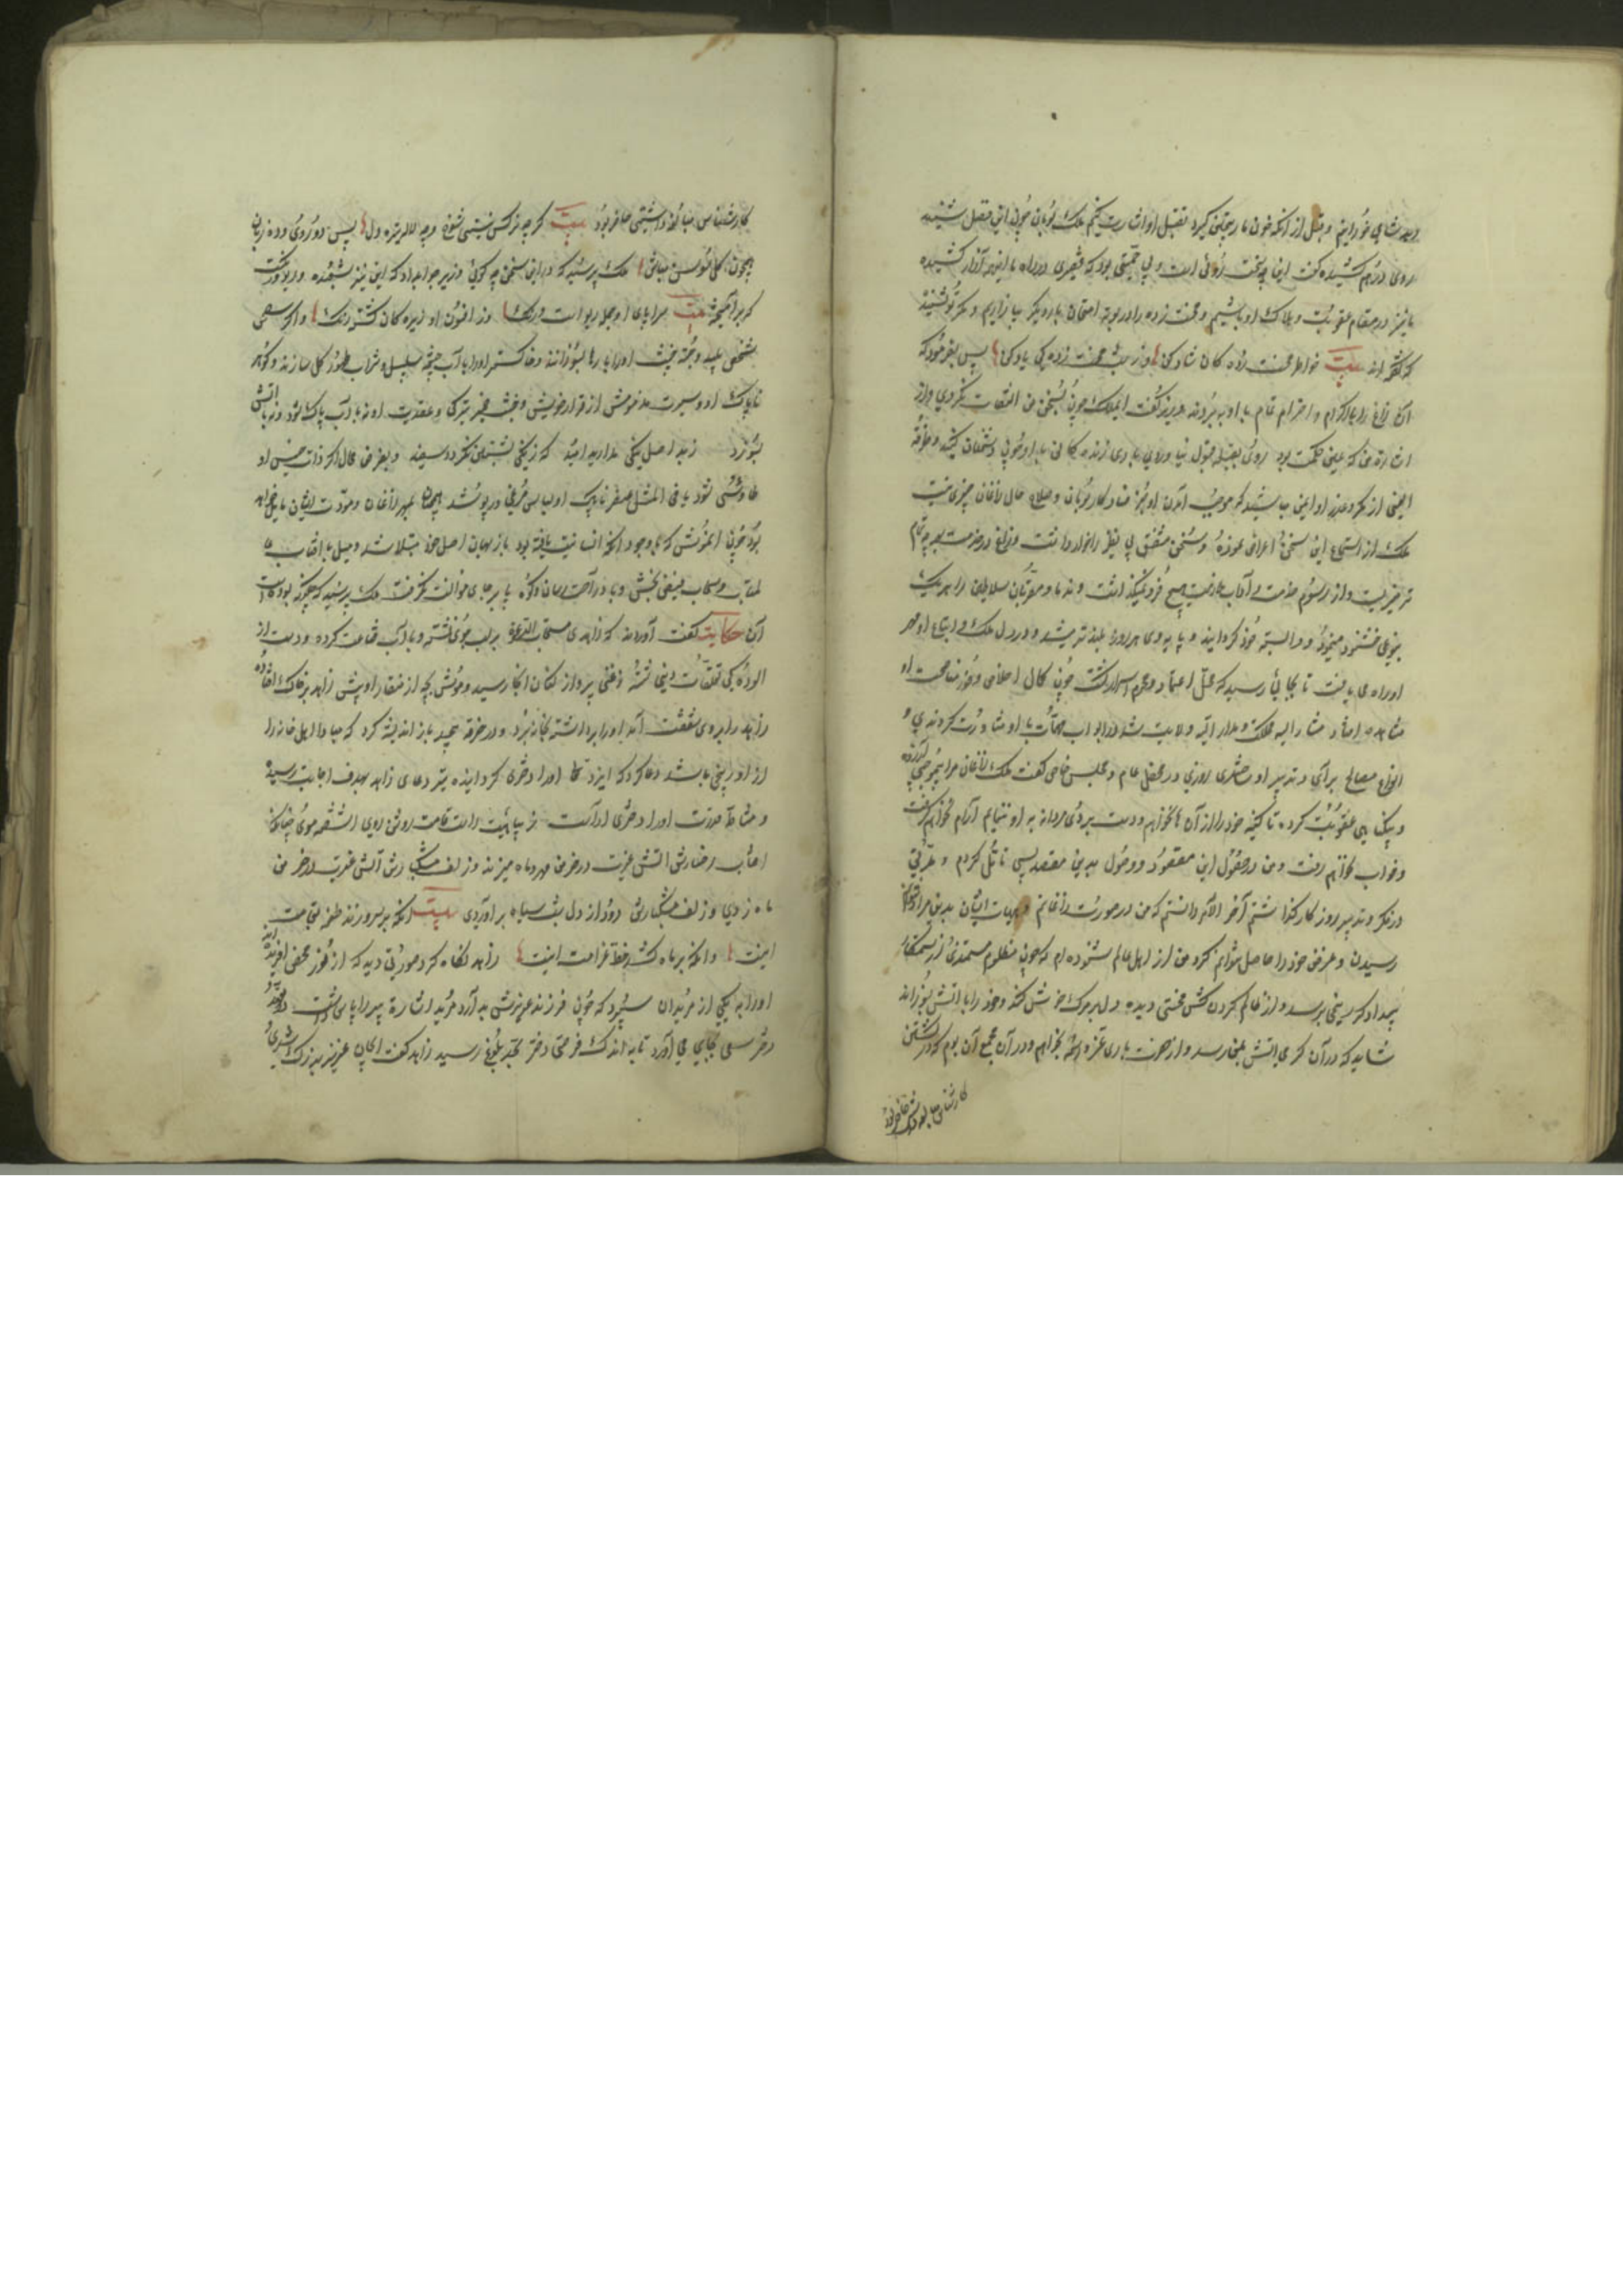 روی درهم کشیده گفت این چه سخت روئی است و بی حمیتی بود که قیصری در راه ما اینهمه آزار کشیده
ما نیز در مقام عقوبت و هلاک او باشیم و محنت زده را در بوته امتحان بار دیگر بیازاریم و مگر تو نشنیدهٔ
که گفته اند بیت خواطر محنت زده کان شاد کن وز شب محنت زدکی یاد کن پس بفرمود که
آن زاغ را باکرام و احترام تمام با او ببردند وزیر گفت ای ملک چون بسخن من التفات نکردی و از
اشارت من که عین حکمت بود روی بقبله قبول نیاوردی باری زنده کانی با او چون دشمنان کنید و طرفة
العینی از مکر و غدر او ایمن مباشید که موجب آمدن او جز فساد کار بومان و صلاح حال زاغان چیزی نیست
ملک از استماع این سخن اعراض نموده و سخن مشفق بی نظیر را خوار داشت و زاغ در خدمت بحرمة تمام
میزیست و از رسوم خدمت و آداب ملازمت هیچ فرو نمیگذاشت و ندما و مقربان سلاطین را هر یک
بنوعی خشنود مینمود و وابسته خود گردانید و پایه وی هر روز بلند تر میشد و در دل ملک و اتباع او مهر
او راه می یافت تا بجائی رسید که محل اعتماد و محرم اسرار گشت چون کمال اخلاص و فرط مناصحت او
مشاهده افتاد مشار الیه مملکت و مدار الیه ولایت شد در ابواب مهمات با او مشاورت کردندی و
انواع مصالح برای و تدبیر او ساختندی روزی در محفل عام و مجلس خاص گفت ملک زاغان مرا بیموجبی آزرده
و بیگناهی عقوبت کرده تا کینه خود را از آن ها نخواهم و دست بردی مردانه به او ننمایم آرام نخواهم گرفت
و خواب نخواهم رفت و من در حصول این مقصود و وصول بدین مقصد بسی تامل کردم و مدتی
در فکر و تدبیر روز کار گذاشتم آخر الامر دانستم که من در صورت زاغانم و هیات ایشان بدین مراد نتوانم
رسیدن و غرض خود را حاصل نتوانم کرد من از اهل علم شنوده ام که چون مظلوم مستمندی از ستمکار
بیدادگر رنجی برسد و از ظالم گردن کش محنتی دیده دل بر مرگ خوش کند و خود را با آتش بسوزاند
شاید که در آن گرمی آتش بمن رسد و از حضرت باری عز و اسمه بخواهم و در آن مجمع آن بوم که در کشتن
کارشناس مبالغه داشتی حاضر بود
کارشناس مبالغه داشتی حاضر بود بیت گر چه نرگس نیستی شوخ و چه لاله تیره دل پس دو روی و ده زبان
همچون گل و سوسن مباش ملک پرسید که در این سخن چه گوئی وزیر جواب داد که این نیز شعبده و رنگیست
که برآمیخته بیت سراپای او جمله ریو است و رنگ وز افسون او زیره کان گشته دنگ و اگر
شخص پلید و جثه خبیث او را بارها بسوزانند و خاکستر او را با آب چشمه سلسبیل و شراب طهور گل سازند گوهر
ناپاک او و سیرت مذمومش از قرار خویش نگردد و خبث ضمیر و کژی عقیدت او نه با آب پاک شود و نه با آتش
بسوزد ز بد اصل نیکی مدارید امید که زنگی بشستن نگردد سفید و بفرض محال اگر ذات خسیس او
طاوسی شود یا فی المثل عنصر ناپاک او لباس سیمرغی در پوشد همچنان بمهر زاغان و مودت ایشان مایل خواهد
بود چون آن موش که با وجود آنکه انسانیت یافته بود باز بهمان اصل خود مبتلا شد و میل با آفتاب عالم
تاب و سحاب فیض بخش و باد راحت رسان و کوه پا بر جای موانست نگرفت ملک پرسید که چگونه بوده است
آن حکایت گفت آورده اند که زاهدی مستجاب الدعوة بر لب جوئی نشسته و با آب قناعت کرده و دست از
آلوده گی تعلقات دنیا شسته زغنی پرواز کنان آنجا رسید و موش بچه از منقار او پیش زاهد بر خاک افتاده
زاهد را بر وی شفقت آمد او را برداشته بخانه برد و در خرقه پیچید باز اندیشه کرد که مبادا اهل خانه را
از او رنجی باشد دعا کرد که ایزد تعالی او را دختری گردانیده تیر دعای زاهد بهدف اجابت رسید
و مشاطه قدرت او را دختری آراست زیبا هیئت راست قامت روشن روی آشفته موی چنانکه
آفتاب رخسارش آتش غیرت در خرمن مهر و ماه میزند و زلف مشکبارش آتش غیرت در خرمن
ماه زدی و زلف مشکبارش دود از دل شب سیاه برآوردی بیت آنکه بر سرو زند طعنه قیامت
اینست و آنکه بر ماه کشد خط غرامت اینست زاهد نگاه کرد صورتی دید که از نور محض آفریده اند
او را به یکی از مریدان سپرد که چون فرزند عزیزش بدارد مرید اشارة پیر را پاس داشت در تعهد
دختر سعی بجای می آورد تا به اندک فرصتی دختر بحد بلوغ رسید زاهد گفت ای جان عزیز بزرگ شدی